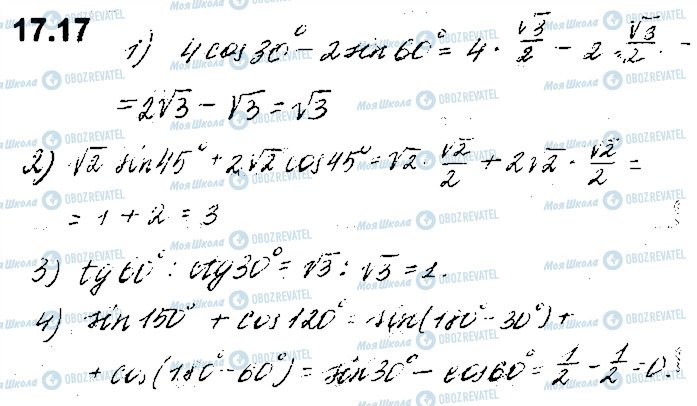 17.17
1) 4cos30° - 2sin60° = 4 · √3/2 - 2 · √3/2 =
= 2√3 - √3 = √3
2) √2 sin45° + 2√2 cos45° = √2 · √2/2 + 2√2 · √2/2 =
= 1 + 2 = 3
3) tg60° : ctg30° = √3 : √3 = 1.
4) sin150° + cos120° = sin(180° - 30°) +
+ cos(180° - 60°) = sin30° - cos60° = 1/2 - 1/2 = 0.
Моя Школа OBOZREVATEL